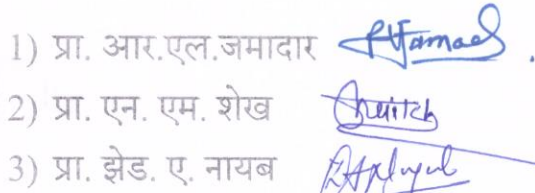 1) प्रा. आर.एल.जमादार
2) प्रा. एन. एम. शेख
3) प्रा. झेड. ए. नायब